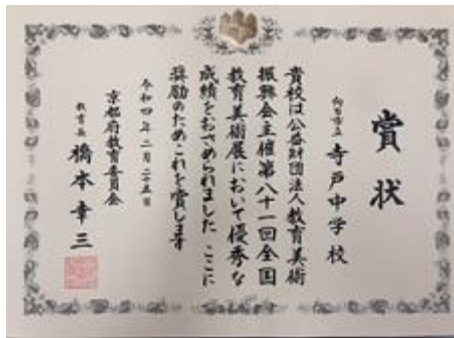 賞状
向日市立 寺戸中学校
貴校は公益財団法人教育美術
振興会主催第八十一回全国
教育美術展において優秀な
成績をおさめられました ここに
奨励のためこれを賞します
令和四年二月二十五日
京都府教育委員会
教育長 橋本幸三